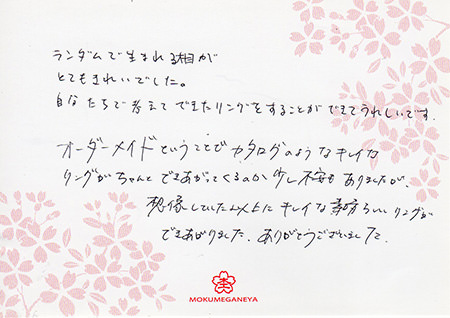 ランダムで生まれる相が
とてもきれいでした。
自分たちで考えてできたリングをすることができてうれしいです.
オーダーメイドということでカタログのようなキレイな
リングがちゃんとできあがってくるのか少し不安もありましたが、
想像していた以上にキレイな素晴らしいリングが
できあがりました. ありがとうございました
MOKUMEGANEYA